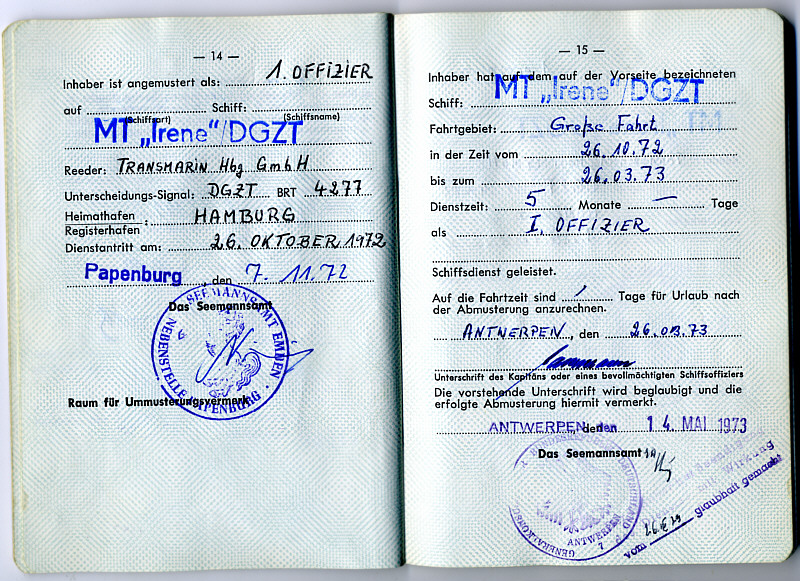 — 14 —
Inhaber ist angemustert als: 1. OFFIZIER
auf Schiff:
(Schiffsart) (Schiffsname)
MT „Irene“/DGZT
Reeder: TRANSMARIN Hbg GmbH
Unterscheidungs-Signal: DGZT BRT 4277
Heimathafen
Registerhafen : HAMBURG
Dienstantritt am: 26. OKTOBER 1972
Papenburg, den 7. 11. 72
Das Seemannsamt
SEEMANNSAMT EMDEN
NEBENSTELLE PAPENBURG
6
Raum für Ummusterungsvermerk
— 15 —
Inhaber hat auf dem auf der Vorseite bezeichneten
Schiff: MT „Irene“/DGZT
Fahrtgebiet: Große Fahrt
in der Zeit vom 26.10.72
bis zum 26.03.73
Dienstzeit: 5 Monate — Tage
als I. OFFIZIER
Schiffsdienst geleistet.
Auf die Fahrtzeit sind / Tage für Urlaub nach
der Abmusterung anzurechnen.
ANTWERPEN, den 26.03.73
Unterschrift des Kapitäns oder eines bevollmächtigten Schiffsoffiziers
Die vorstehende Unterschrift wird beglaubigt und die
erfolgte Abmusterung hiermit vermerkt.
ANTWERPEN, den den 14. MAI 1973
Das Seemannsamt
BUNDESREPUBLIK DEUTSCHLAND
ANTWERPEN
7
Wirkung
vom glaubhaft gemacht